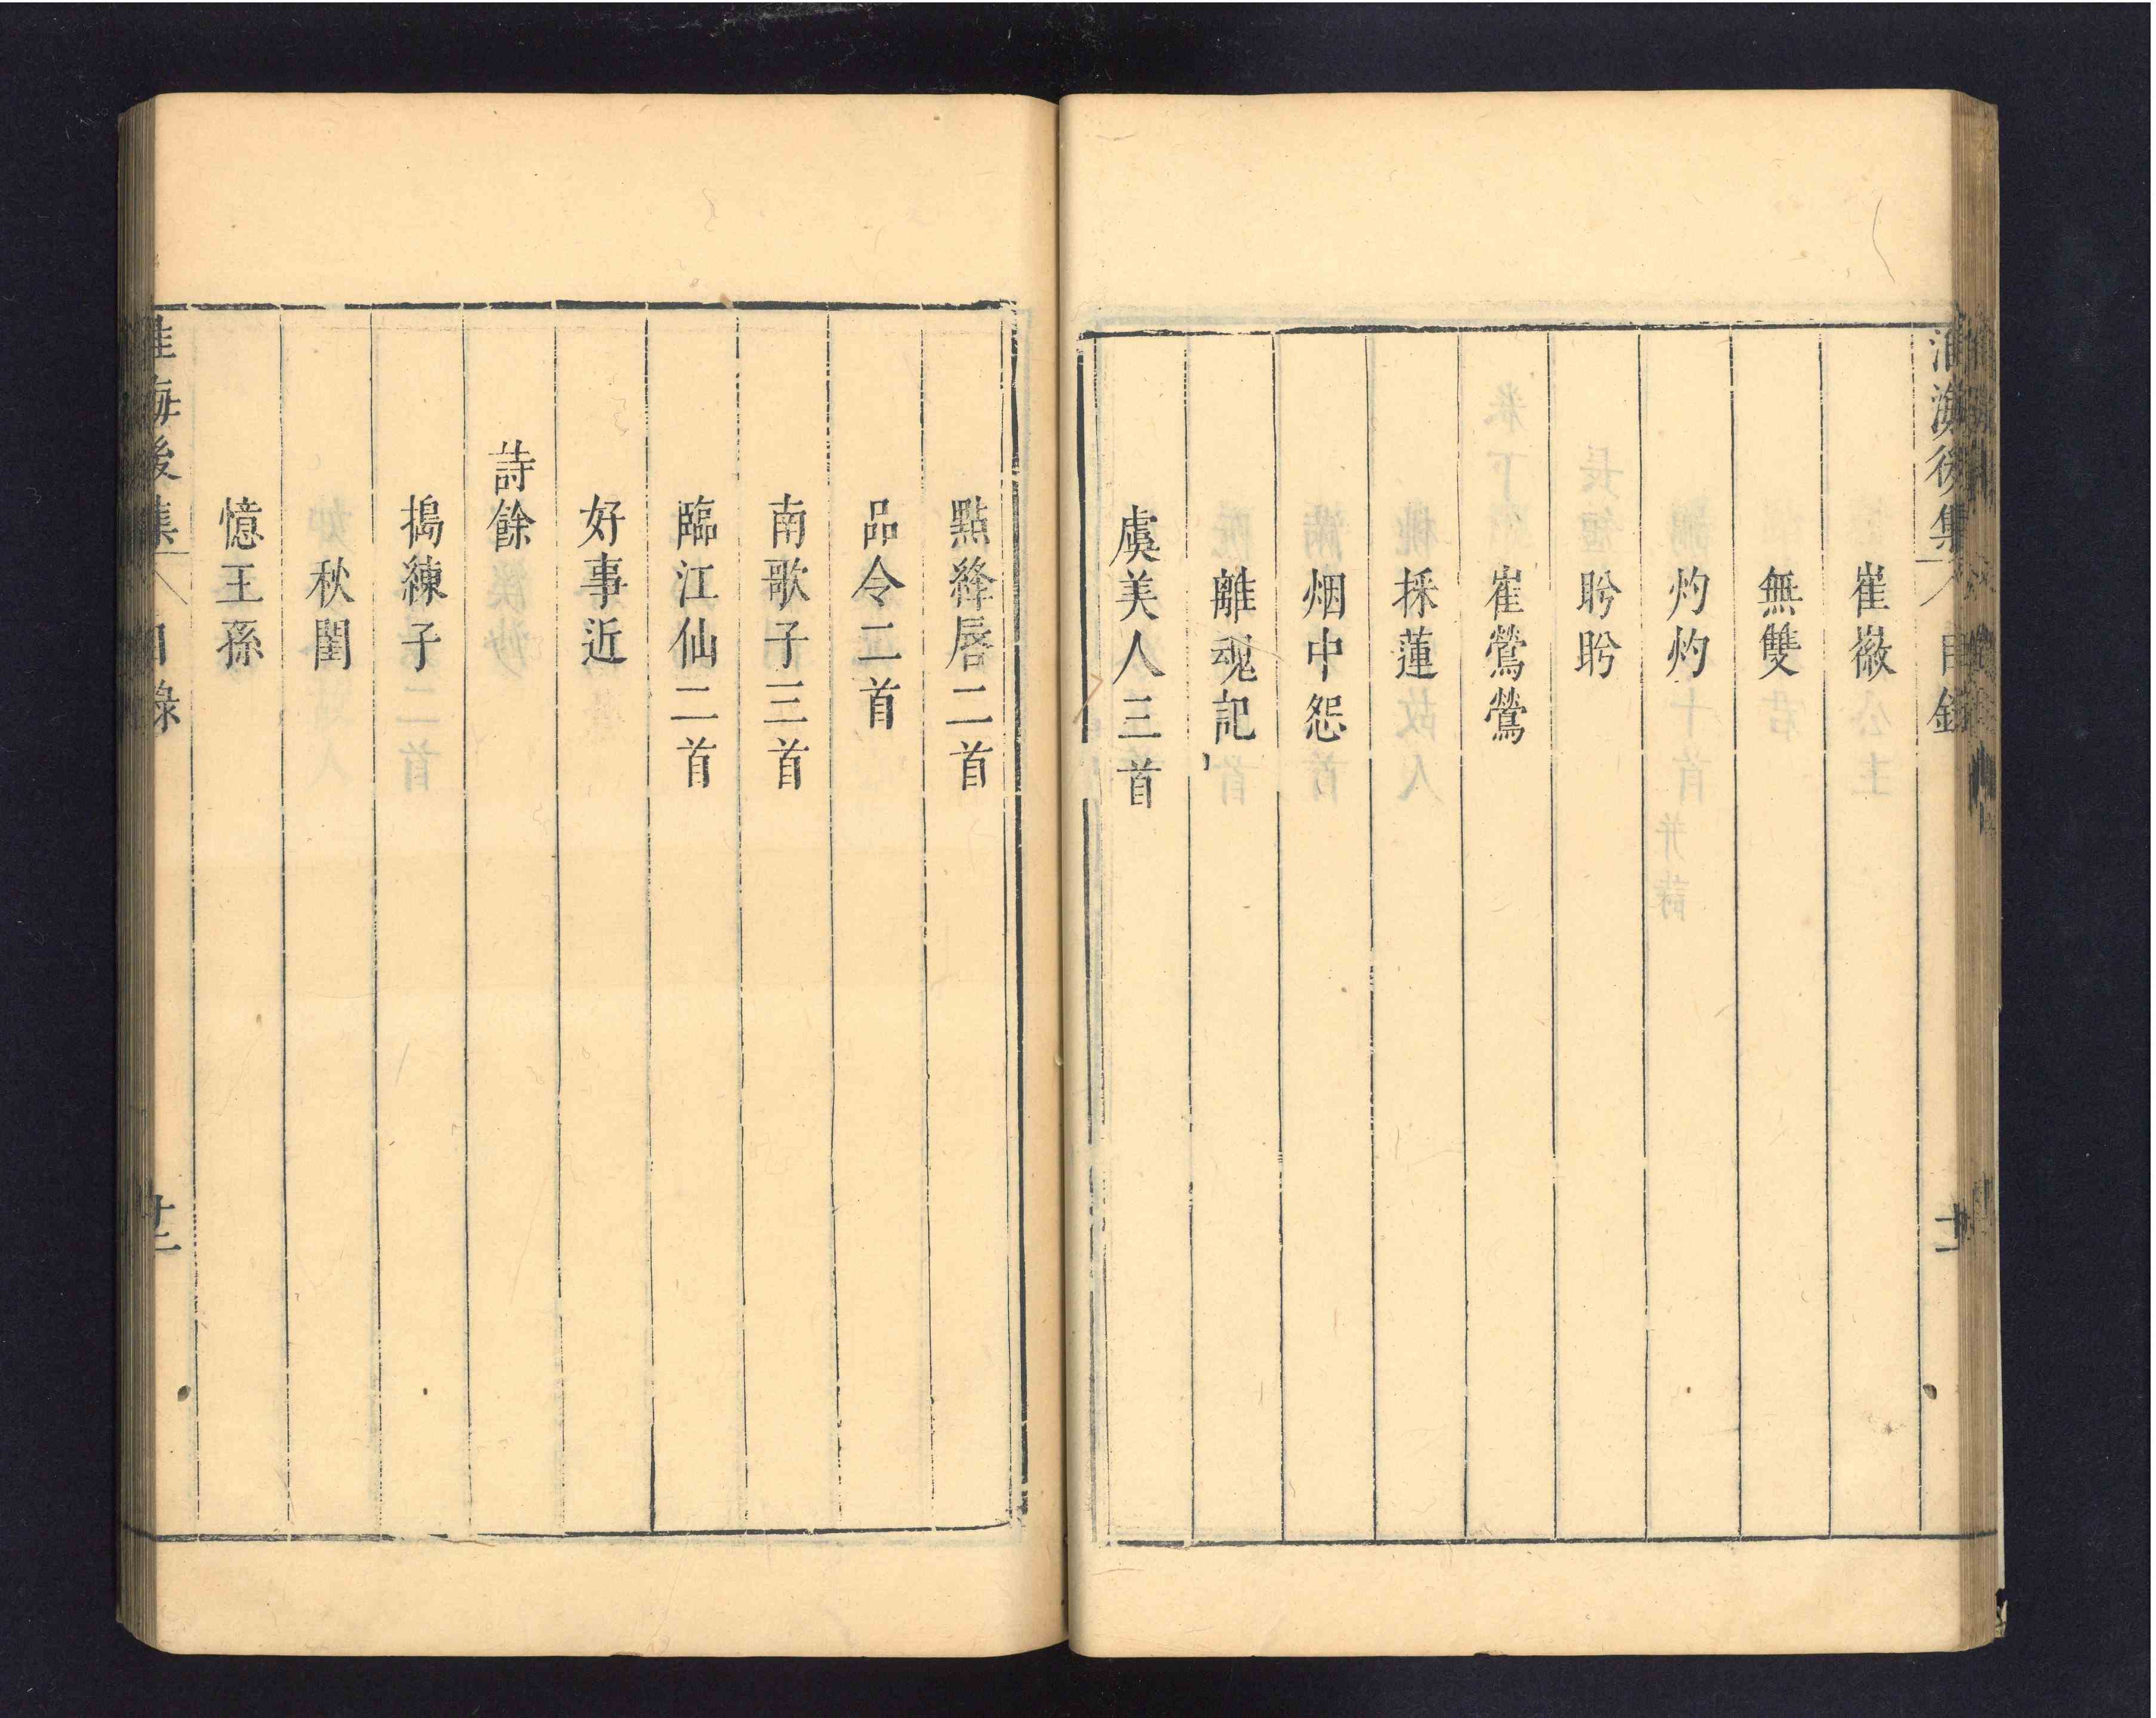 淮海後集 目錄
崔徽
無雙
灼灼
盻盻
崔鶯鶯
採蓮
烟中怨
離魂記
虞美人三首
點絳唇二首
品令二首
南歌子三首
臨江仙二首
好事近
詩餘
搗練子
秋閨
憶王孫
淮海後集 目錄